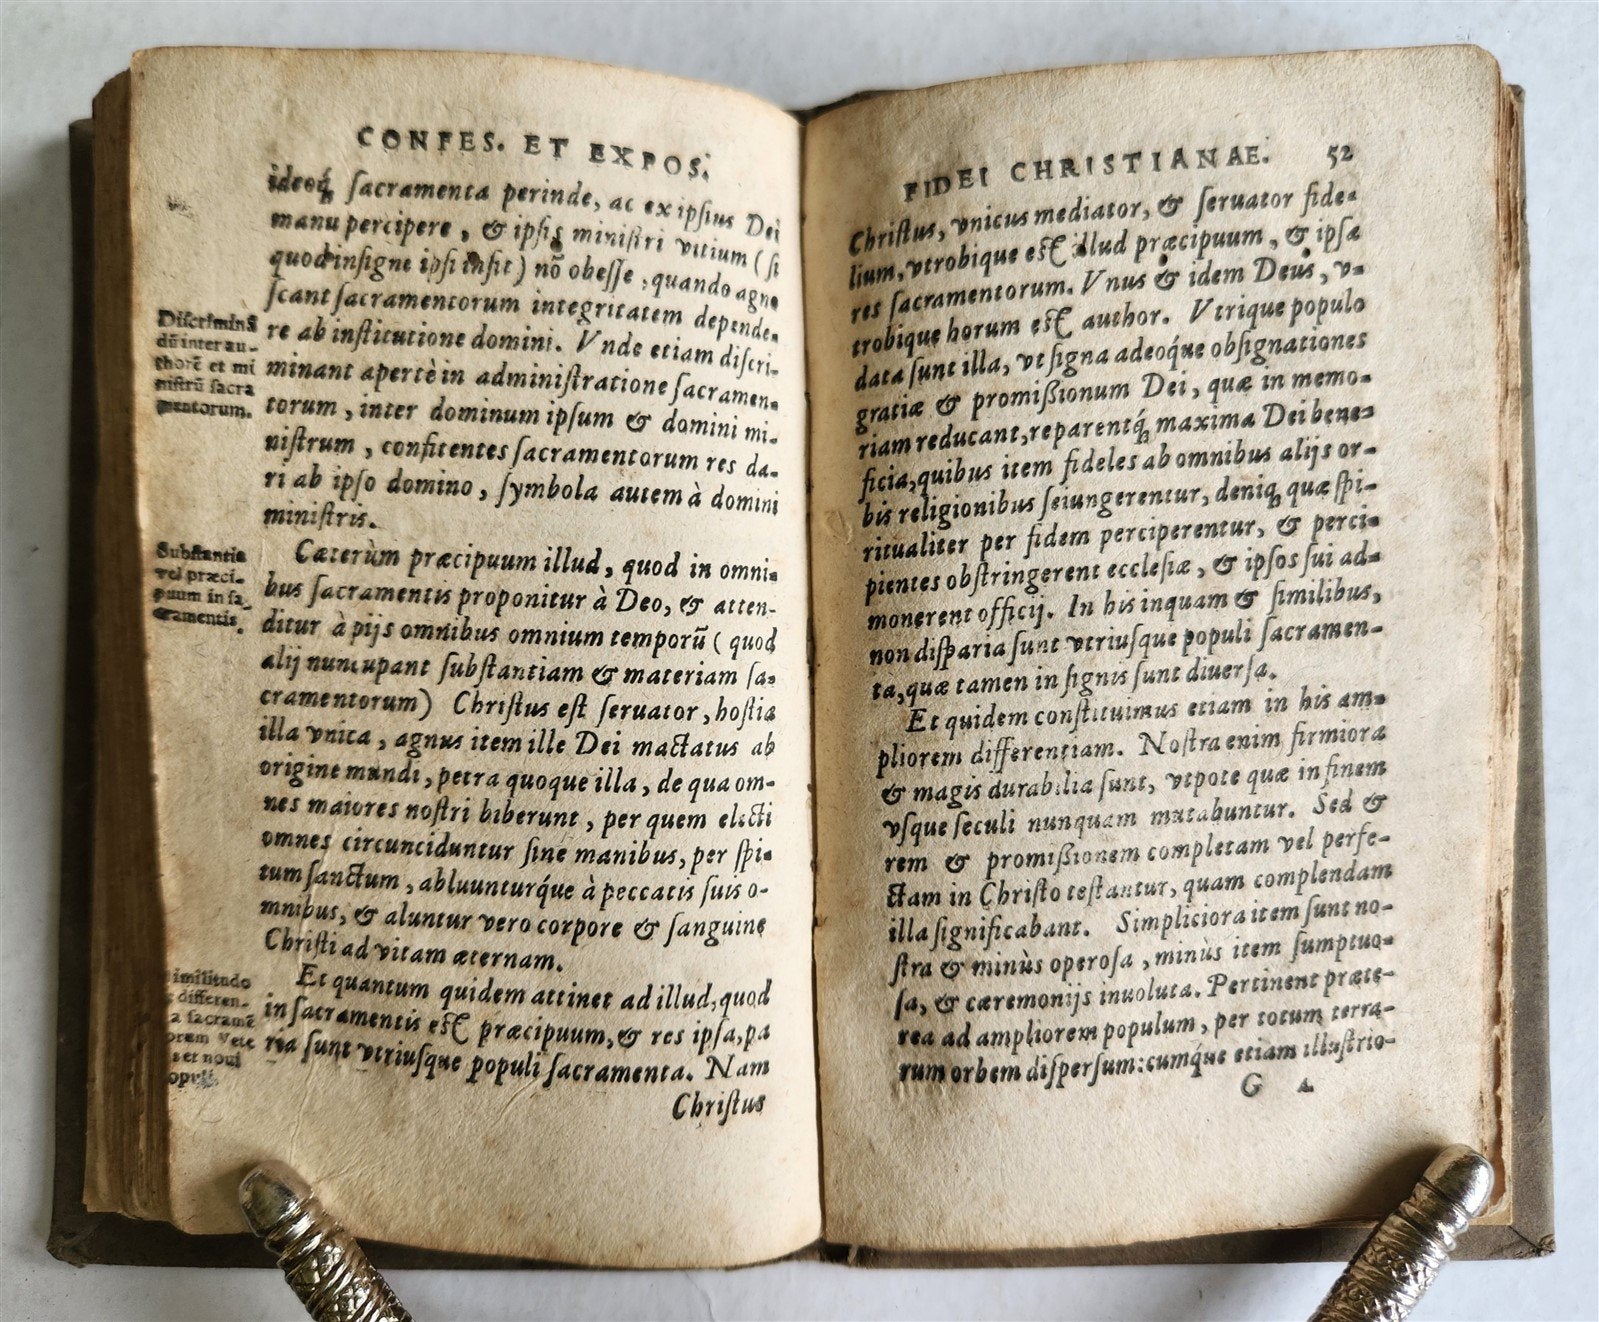 CONFES. ET EXPOS.
ideoq́ʒ sacramenta perinde, ac ex ipsius Dei
manu percipere, & ipsis ministri vitium (si
quod insigne ipsi insit) nō obesse, quando agno
scant sacramentorum integritatem depende-
re ab institutione domini. Vnde etiam discri-
minant apertè in administratione sacramen-
torum, inter dominum ipsum & domini mi-
nistrum, confitentes sacramentorum res da-
ri ab ipso domino, symbola autem à domini
ministris.
Discriminā
dū inter au-
thorē et mi
nistrū sacra
mentorum.
Cæterùm præcipuum illud, quod in omni-
bus sacramentis proponitur à Deo, & atten-
ditur à pijs omnibus omnium temporū (quod
alij nuncupant substantiam & materiam sa-
cramentorum) Christus est seruator, hostia
illa vnica, agnus item ille Dei mactatus ab
origine mundi, petra quoque illa, de qua om-
nes maiores nostri biberunt, per quem electi
omnes circunciduntur sine manibus, per spi-
tum sanctum, abluunturq́ue à peccatis suis o-
mnibus, & aluntur vero corpore & sanguine
Christi ad vitam æternam.
Substantia
vel præci-
puum in sa-
cramentis.
Et quantum quidem attinet ad illud, quod
in sacramentis est præcipuum, & res ipsa, pa
ria sunt vtriusque populi sacramenta. Nam
Christus
imilitudo
differen-
a sacramē
orum Vete
s et noui
opuli.
FIDEI CHRISTIANAE. 52
Christus, vnicus mediator, & seruator fide-
lium, vtrobique est illud præcipuum, & ipsa
res sacramentorum. Vnus & idem Deus, v-
trobique horum est author. Vtrique populo
data sunt illa, vt signa adeoq́ue obsignationes
gratiæ & promißionum Dei, quæ in memo-
riam reducant, reparentq́ʒ maxima Dei bene-
ficia, quibus item fideles ab omnibus alijs or-
bis religionibus seiungerentur, deniqʒ quæ spi-
ritualiter per fidem perciperentur, & perci-
pientes obstringerent ecclesiæ, & ipsos sui ad-
monerent officij. In his inquam & similibus,
non disparia sunt vtriusque populi sacramen-
ta, quæ tamen in signis sunt diuersa.
Et quidem constituimus etiam in his am-
pliorem differentiam. Nostra enim firmiora
& magis durabilia sunt, vtpote quæ in finem
vsque seculi nunquam mutabuntur. Sed &
rem & promißionem completam vel perfe-
ctam in Christo testantur, quam complendam
illa significabant. Simpliciora item sunt no-
stra & minùs operosa, minùs item sumptuo-
sa, & cæremonijs inuoluta. Pertinent præte-
rea ad ampliorem populum, per totum terra-
rum orbem dispersum: cumq́ue etiam illustrio-
G